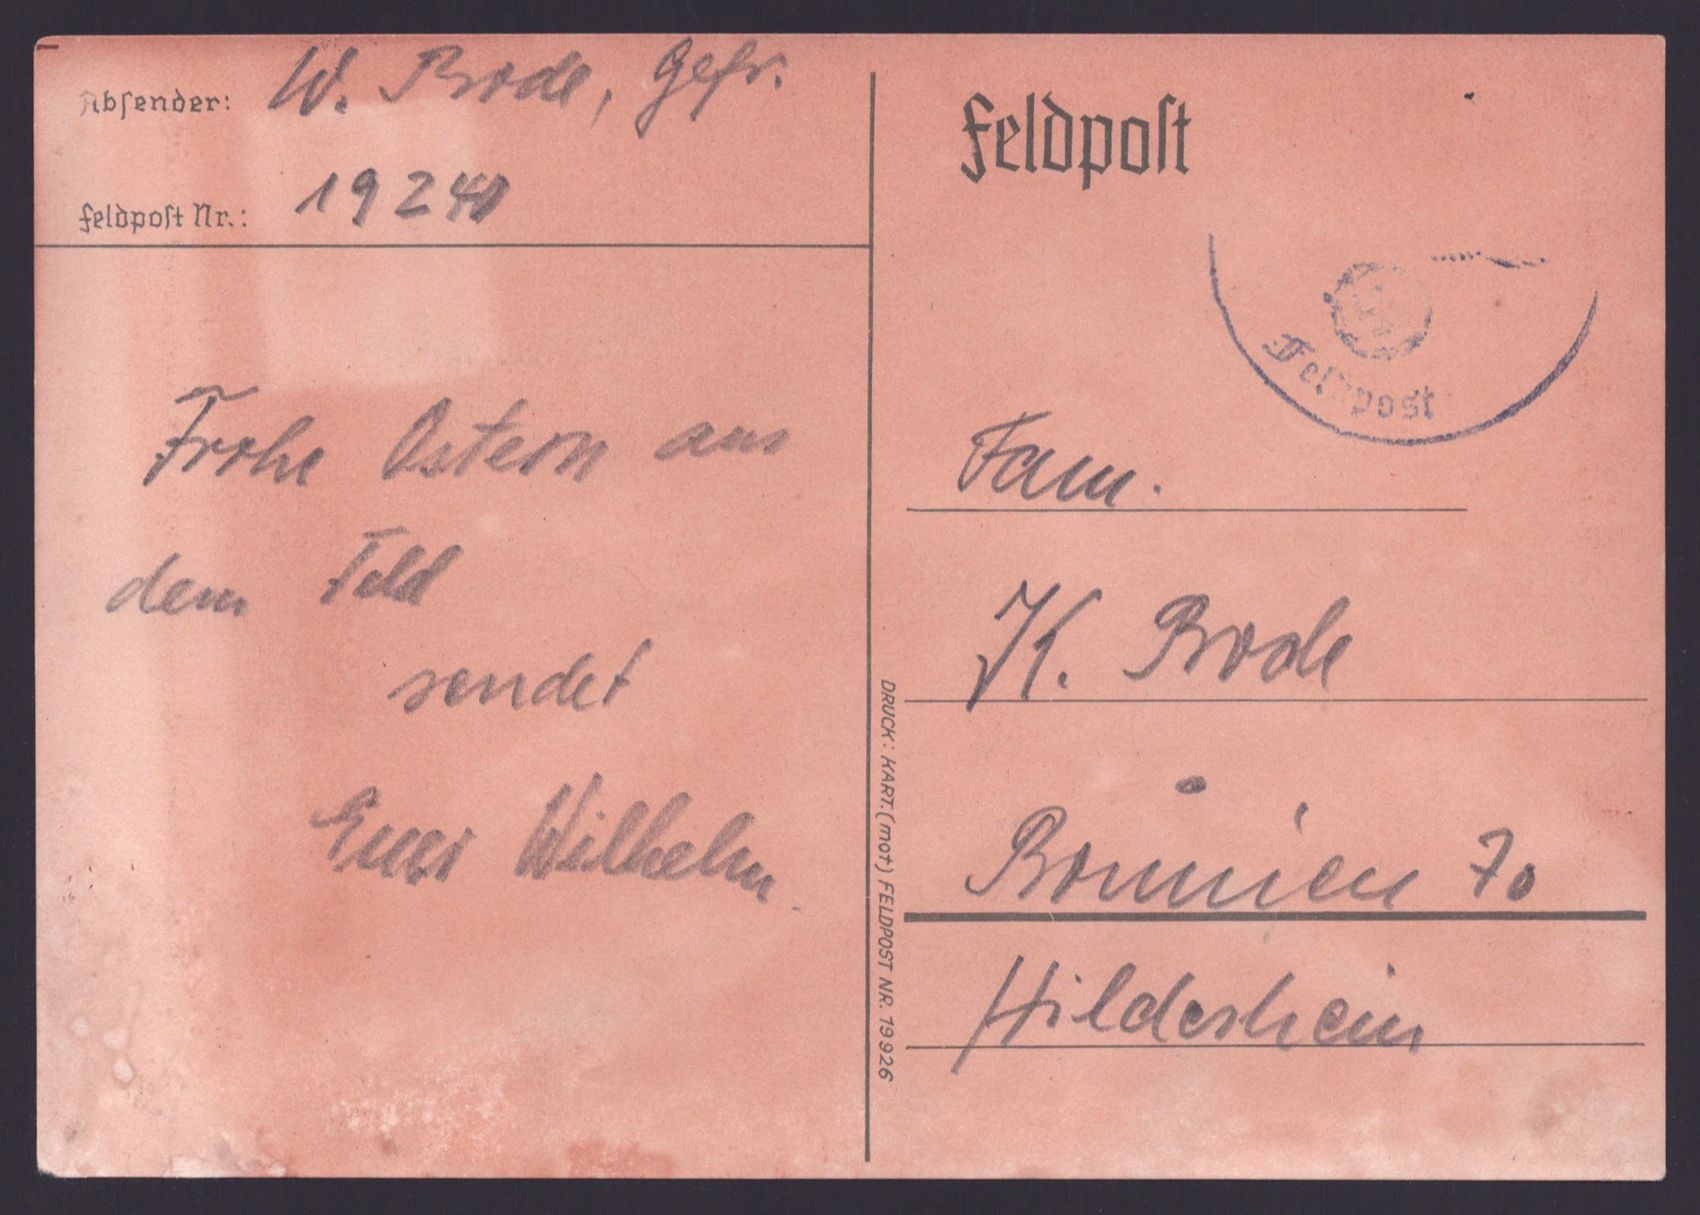 Absender: W. Bode, Gefr.
Feldpost Nr.: 19240
Frohe Ostern aus
dem Feld
sendet
Euer Wilhelm.
Feldpost
Feldpost
Fam.
K. Bode
70
Hildesheim
DRUCK: KART. (mot) FELDPOST NR. 19926